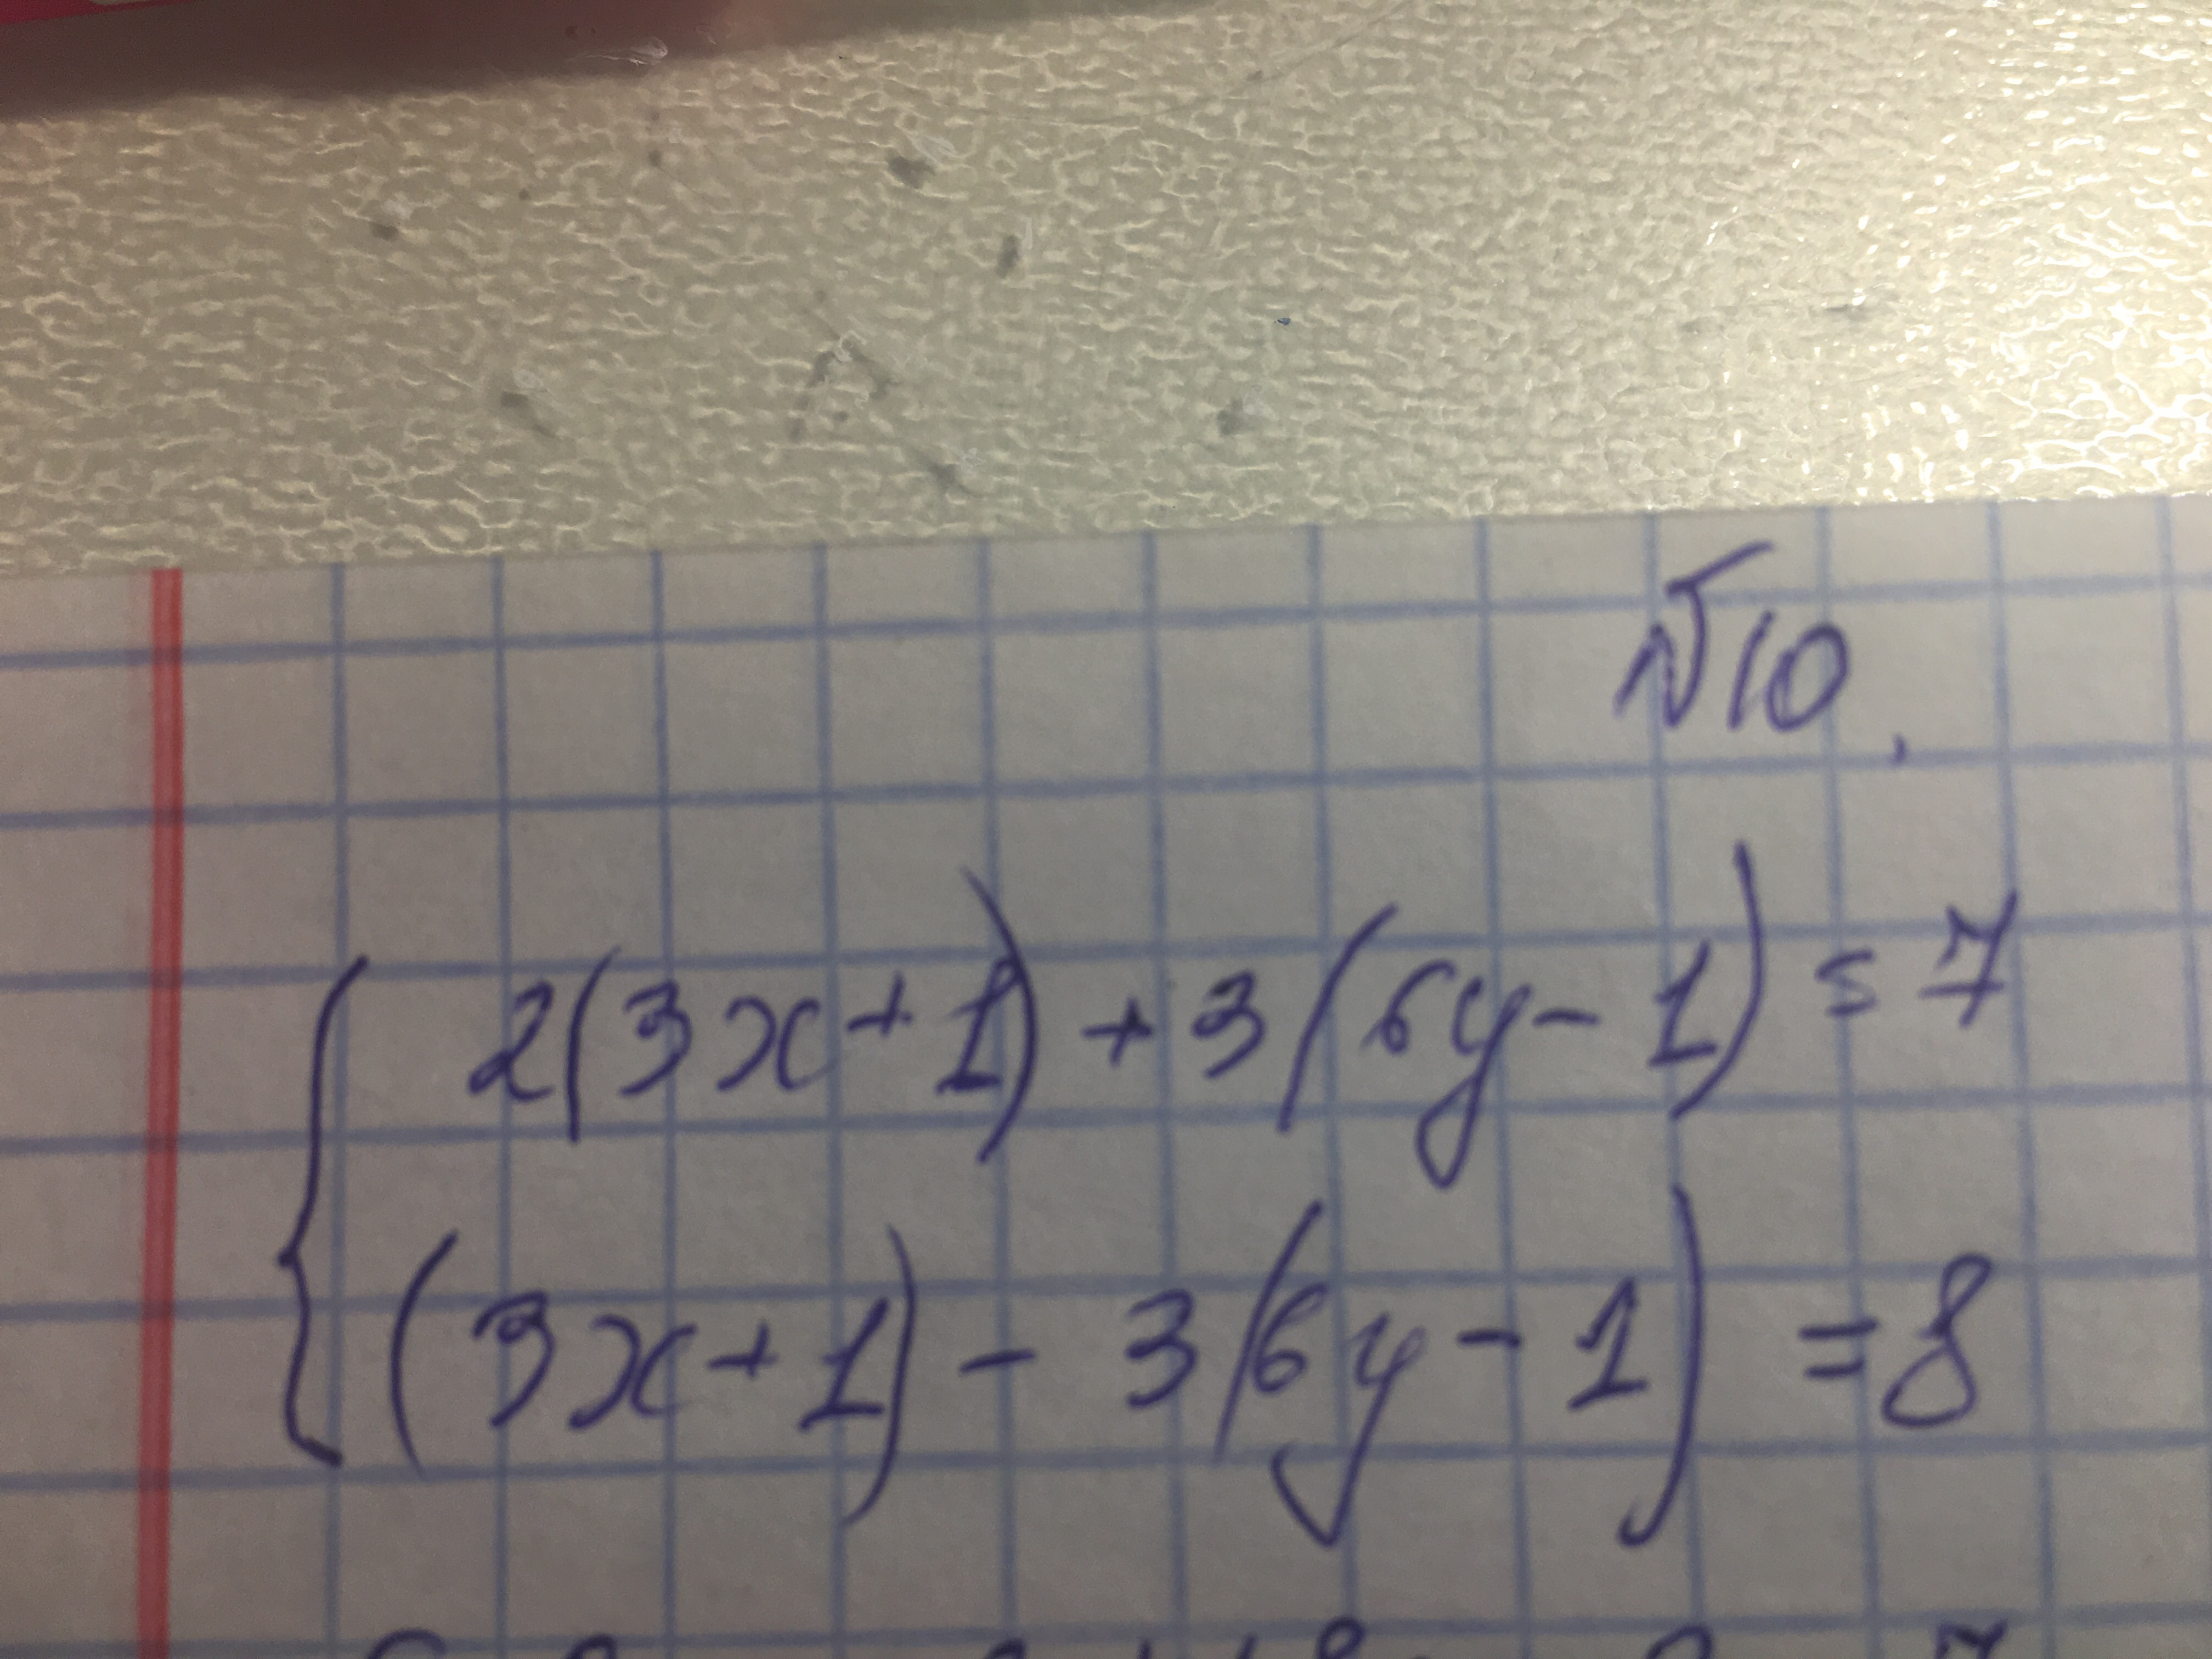 №10.
2(3x+1)+3(6y-1)=7
(3x+1)-3(6y-1)=8